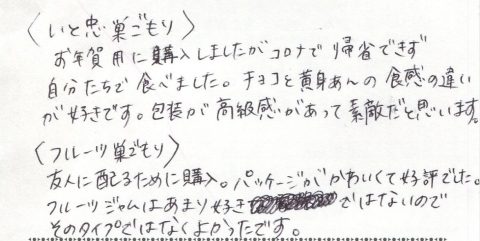 〈いと忠 巣ごもり〉
お年賀用に購入しましたがコロナで帰省できず
自分たちで食べました。チョコと黄身あんの食感の違い
が好きです。包装が高級感があって素敵だと思います。
〈フルーツ巣ごもり〉
友人に配るために購入。パッケージがかわいくて好評でした。
フルーツジャムはあまり好きではないので
そのタイプではなくよかったです。